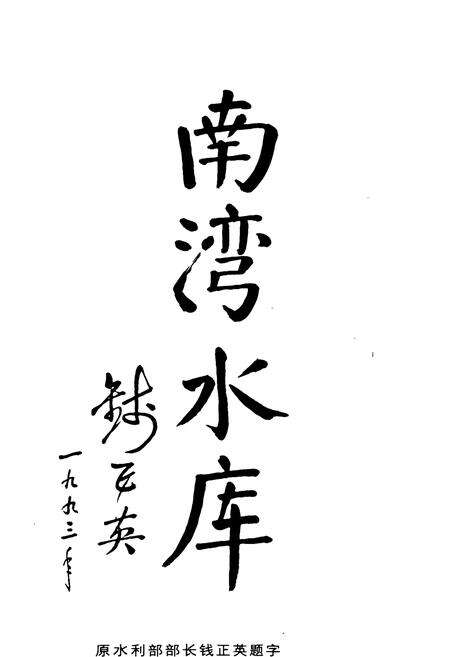 南湾水库
钱正英
一九九三年
原水利部部长钱正英题字